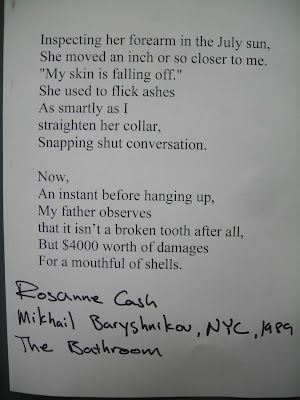 Inspecting her forearm in the July sun,
She moved an inch or so closer to me.
"My skin is falling off."
She used to flick ashes
As smartly as I
straighten her collar,
Snapping shut conversation.
Now,
An instant before hanging up,
My father observes
that it isn't a broken tooth after all,
But $4000 worth of damages
For a mouthful of shells.
Rosanne Cash
Mikhail Baryshnikov, NYC, 1989
The Bathroom